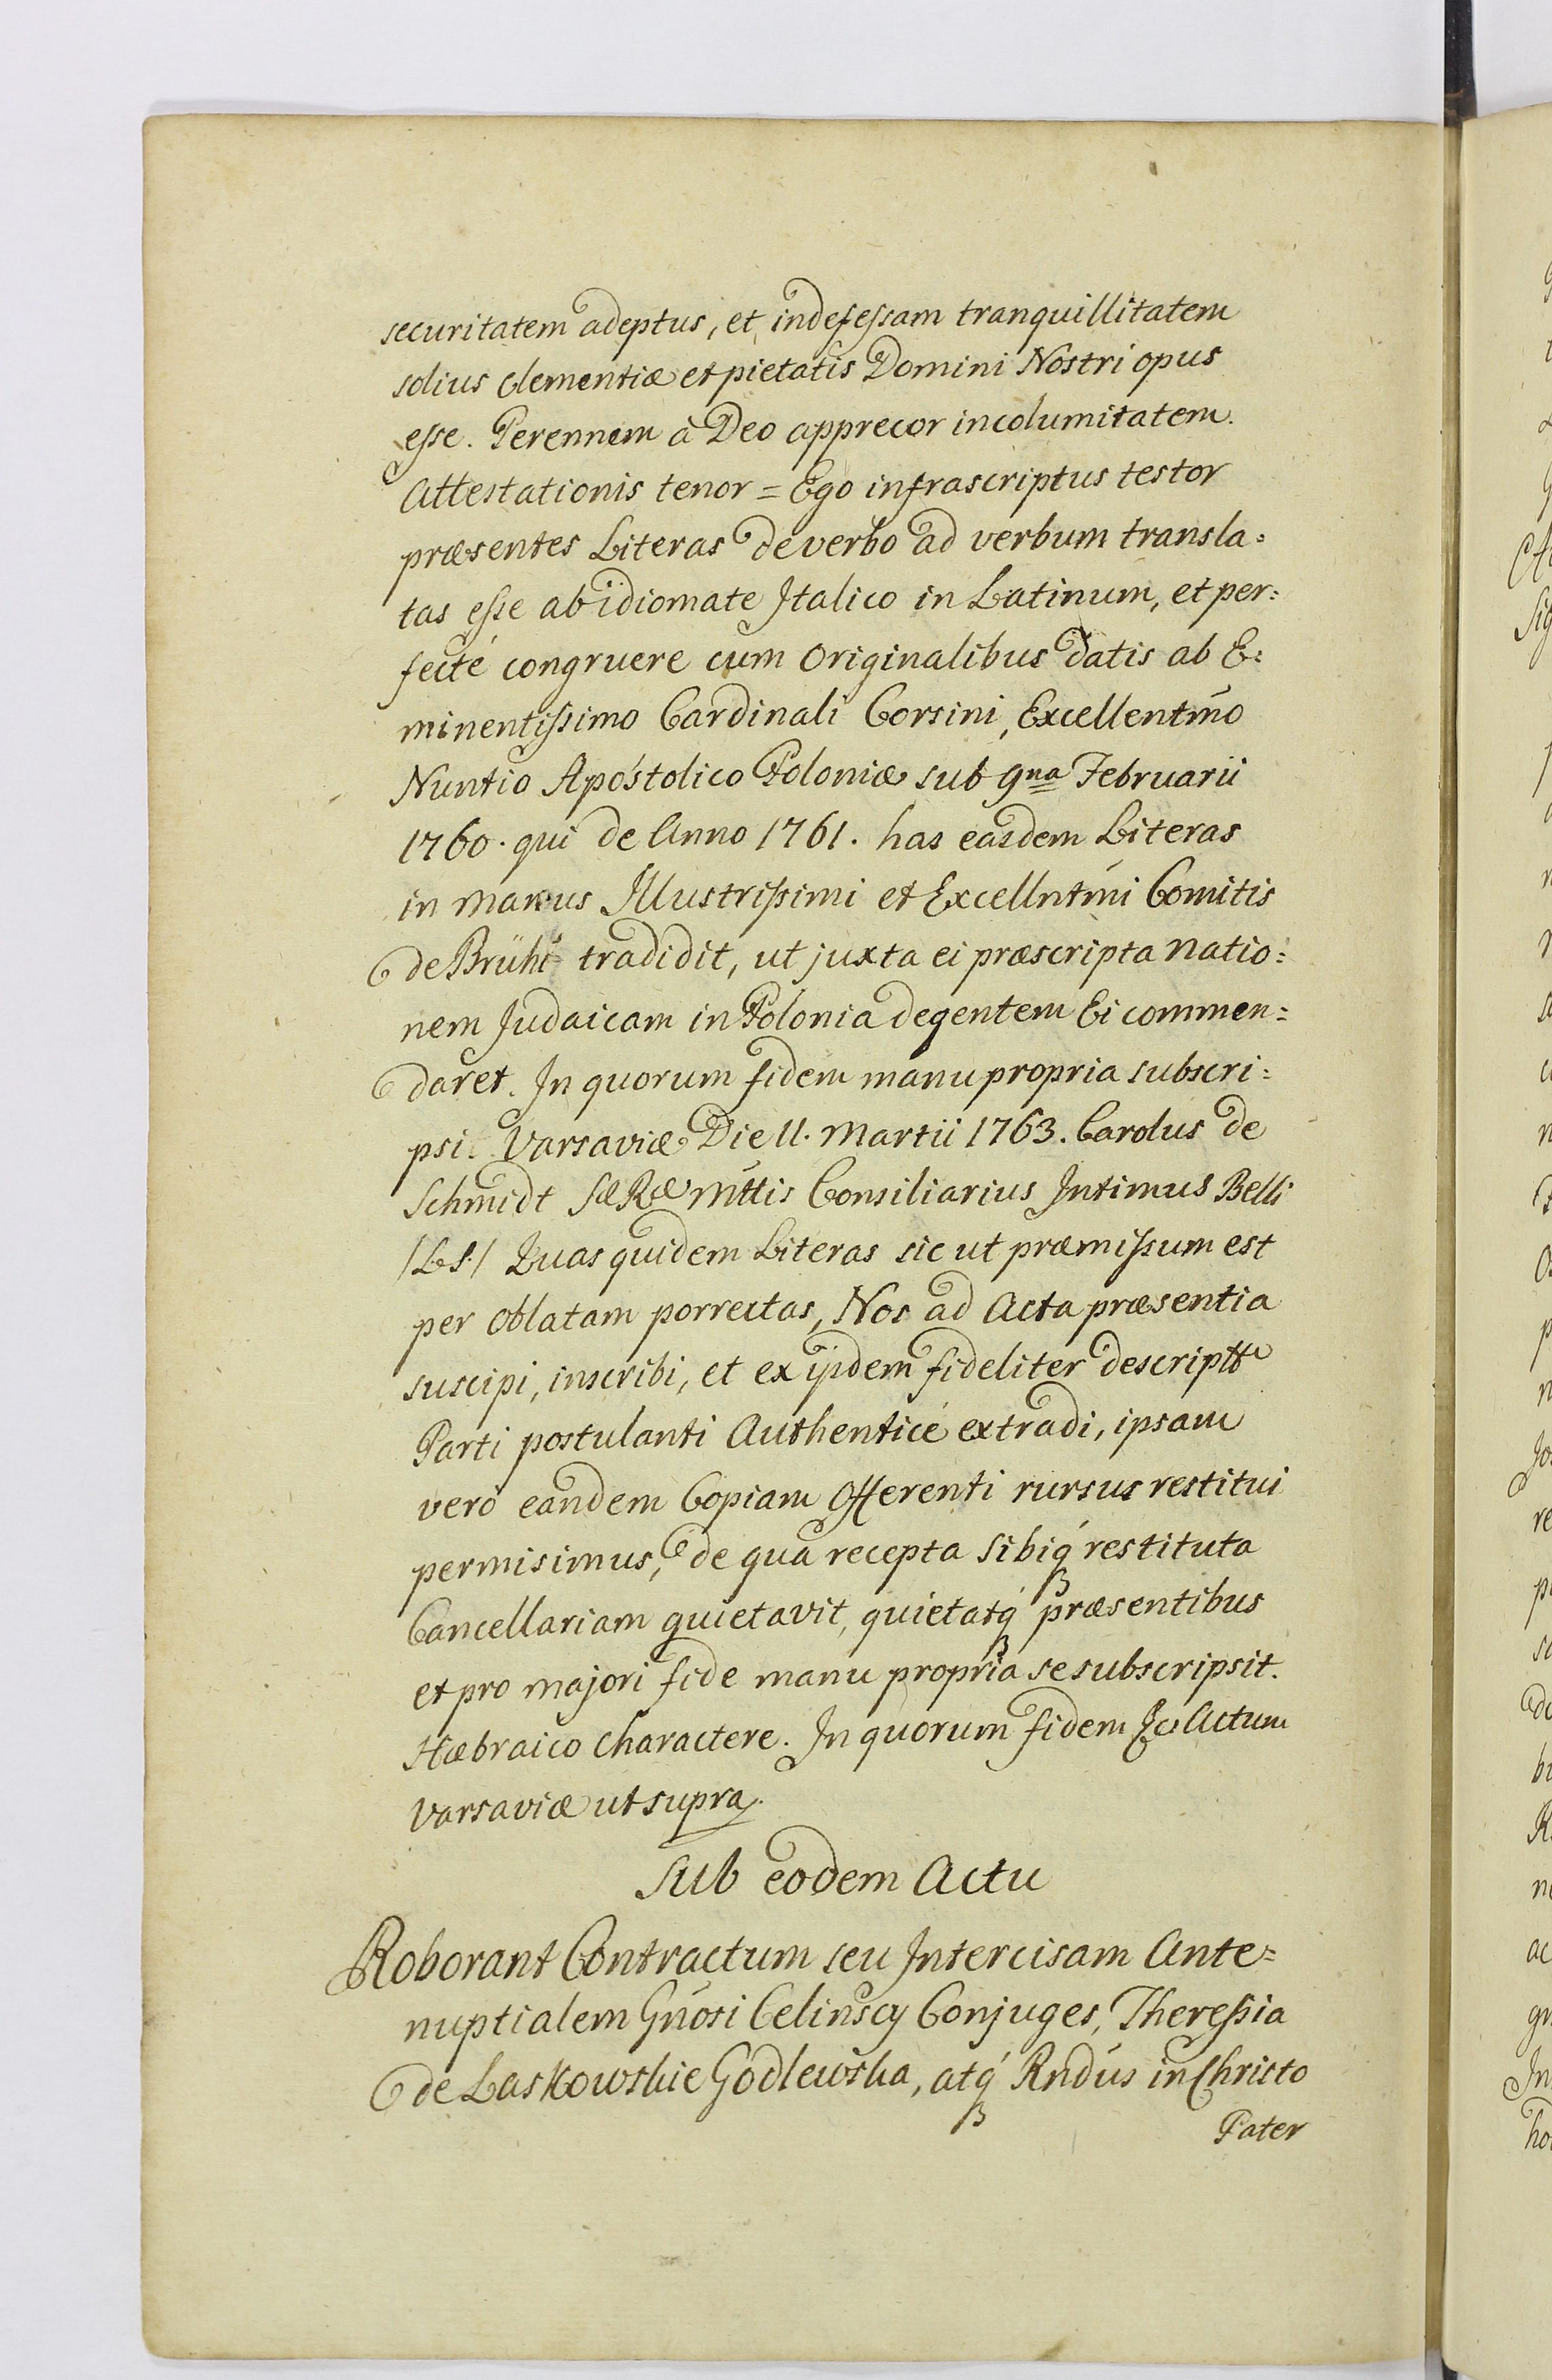 securitatem adeptus, et indefessam tranquillitatem
solius clementiæ et pietatis Domini Nostri opus
esse. Perennem à Deo apprecor incolumitatem.
Attestationis tenor = Ego infrascriptus testor
præsentes Literas de verbo ad verbum transla=
tas esse ab idiomate Italico in Latinum, et per=
fecté congruere cum Originalibus datis ab E=
minentissimo Cardinali Corsini, Excellentm̃o
Nuntio Apostolico Poloniæ sub 9na Februarii
1760. qui de Anno 1761. has easdem Literas
in manus Illustrissimi et Excellntm̃i Comitis
de Brühl tradidit, ut juxta ei præscripta natio=
nem Judaicam in Polonia degentem Ei commen=
daret. In quorum fidem manu propria subscri=
psi. Varsaviæ Die 11. Martii 1763. Carolus de
Schmidt SæRæ Mttis Consiliarius Intimus Belli
/LS./ Quas quidem Literas sic ut præmissum est
per Oblatam porrectas, Nos ad Acta præsentia
suscipi, inscribi, et ex ijsdem fideliter descriptt
Parti postulanti Authenticé extradi, ipsam
verò eandem Copiam Offerenti rursus restitui
permisimus, de qua recepta sibiq́ restituta
Cancellariam quietavit, quietatq́ præsentibus
et pro majori fide manu propria se subscripsit.
Hæbraico Charactere. In quorum fidem &c Actum
Varsaviæ ut supra.
Sub eodem Actu
Roborant Contractum seu Intercisam Ante=
nuptialem Gñosi Celinscy Conjuges, Theressia
de Laskowskie Godlewska, atq́ Rndús in Christo
Pater